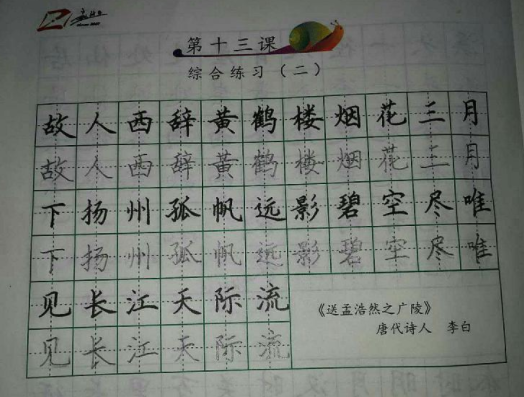 第十三课
综合练习（二）
故人西辞黄鹤楼烟花三月
故人西辞黄鹤楼烟花三月
下扬州孤帆远影碧空尽唯
下扬州孤帆远影碧空尽唯
见长江天际流
见长江天际流
《送孟浩然之广陵》
唐代诗人 李白